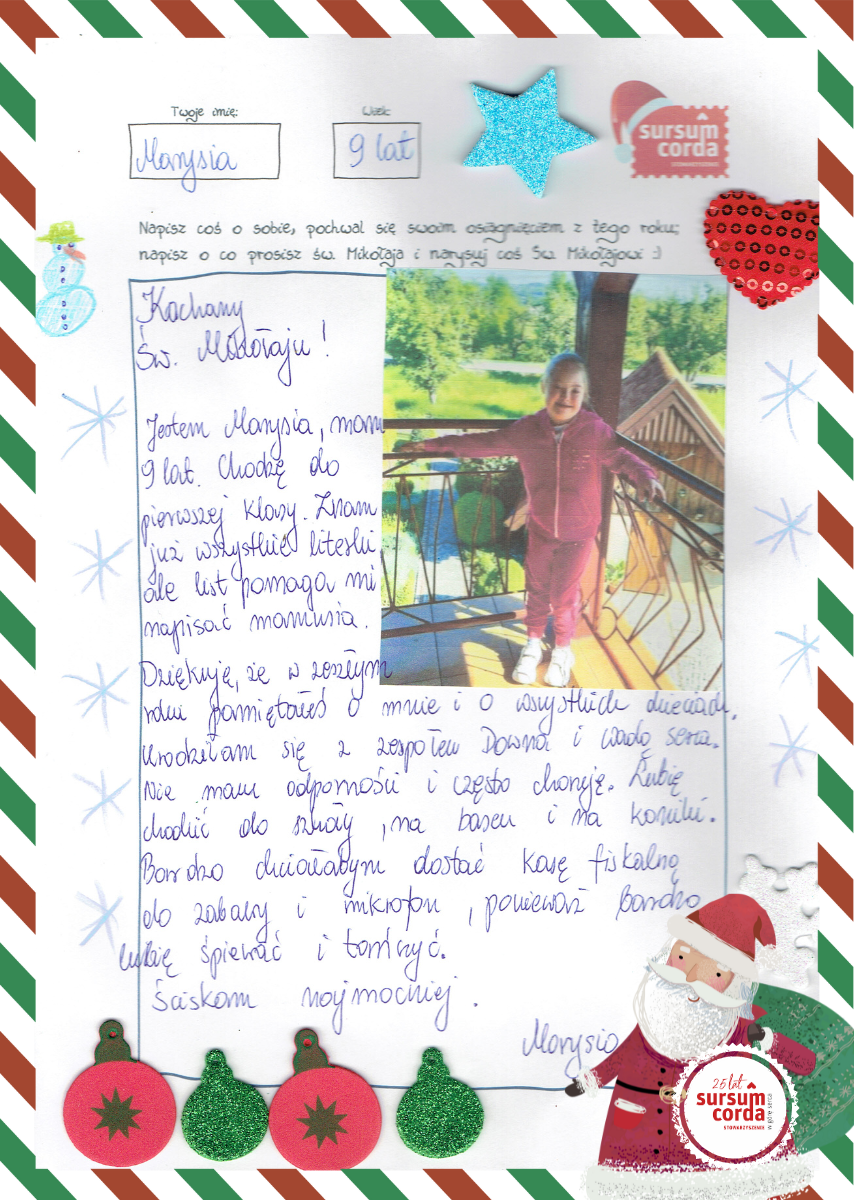 Twoje imię:
Wiek:
Marysia
9 lat
sursum
corda
STOWARZYSZENIE
Napisz coś o sobie, pochwal się swoim osiągnięciem z tego roku;
napisz o co prosisz św. Mikołaja i narysuj coś Św. Mikołajowi :)
Kochany
Św. Mikołaju!
Jestem Marysia, mam
9 lat. Chodzę do
pierwszej klasy. Znam
już wszystkie literki
ale list pomaga mi
napisać mamusia.
Dziękuję, że w zeszłym
roku pamiętałeś o mnie i o wszystkich dzieciach.
Urodziłam się z zespołem Downa i wadą serca.
Nie mam odporności i często choruję. Lubię
chodzić do szkoły, na basen i na koniki.
Bardzo chciałabym dostać kasę fiskalną
do zabawy i mikrofon, ponieważ bardzo
lubię śpiewać i tańczyć.
Ściskam najmocniej.
Marysia
25 lat
sursum
corda
STOWARZYSZENIE